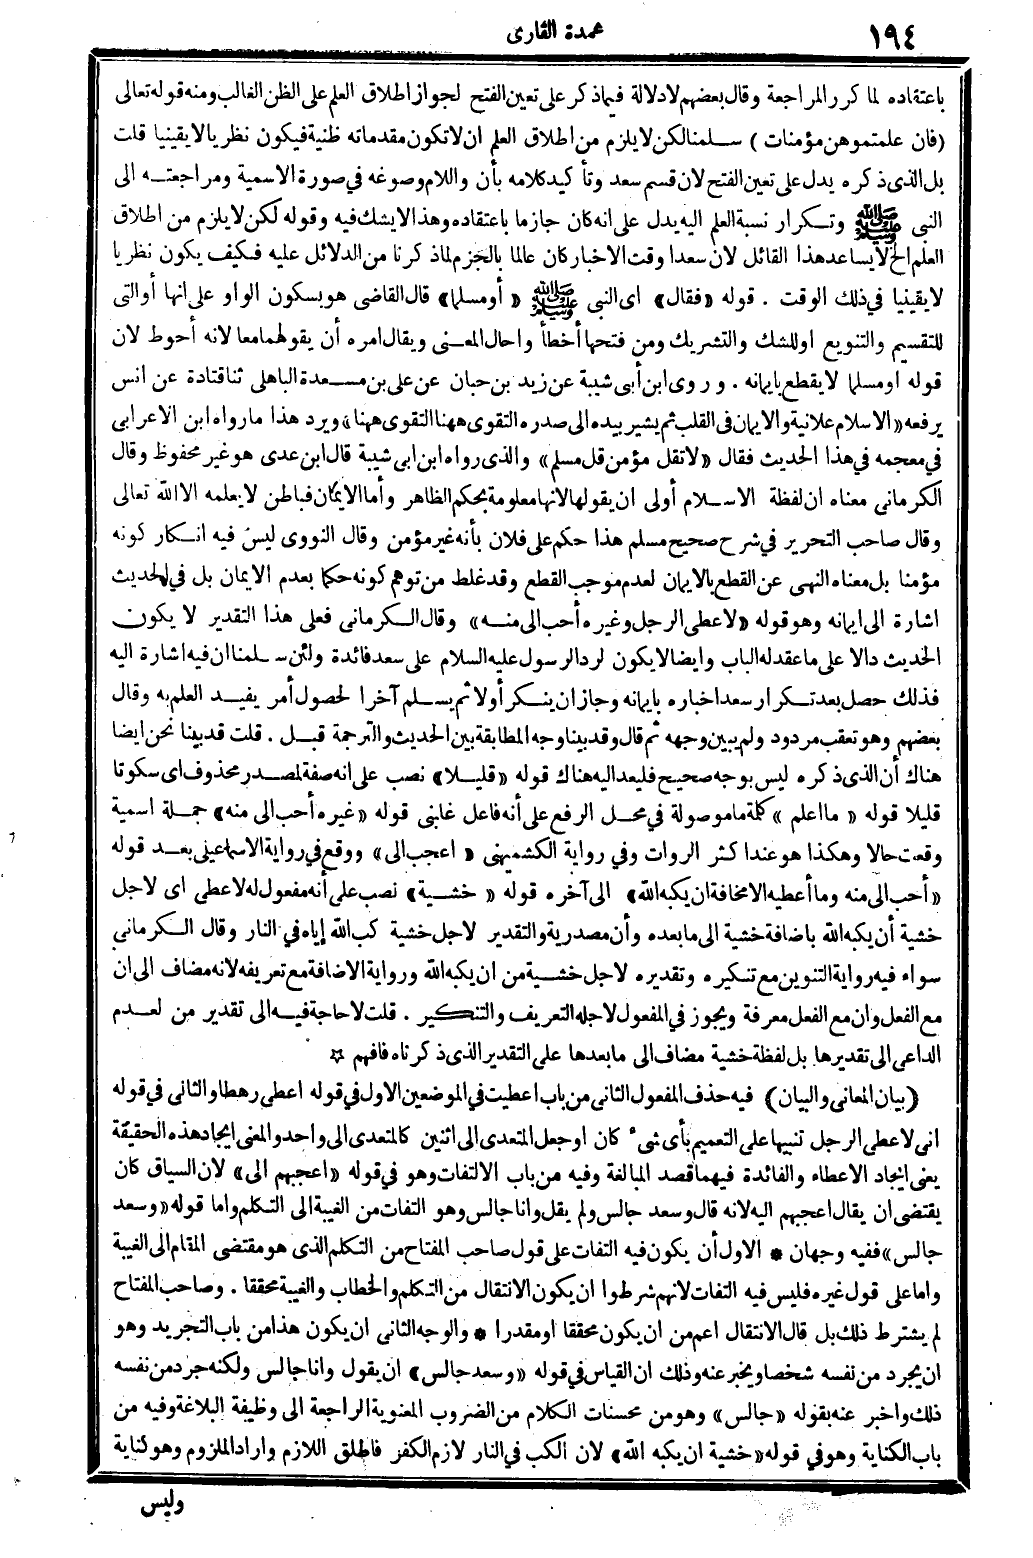 ١٩٤
عمدة القارى
باعتقاده لما كرر المراجعة وقال بعضهم لا دلالة فيما ذكر على تعين الفتح لجواز اطلاق العلم على الظن الغالب ومنه قوله تعالى
(فان علمتموهن مؤمنات) سلمنا لكن لا يلزم من اطلاق العلم ان لا تكون مقدماته ظنية فيكون نظريا لا يقينيا قلت
بل الذى ذكره يدل على تعين الفتح لان قسم سعد وتأكيد كلامه بأن واللام وصوغه في صورة الاسمية ومراجعته الى
النبى ﷺ وتكرار نسبة العلم اليه يدل على انه كان جازما باعتقاده وهذا لا يشك فيه وقوله لكن لا يلزم من اطلاق
العلم الخ لا يساعد هذا القائل لان سعدا وقت الاخبار كان عالما بالجزم لما ذكرنا من الدلائل عليه فكيف يكون نظريا
لا يقينيا في ذلك الوقت . قوله «فقال» اى النبى ﷺ «أو مسلما» قال القاضى هو بسكون الواو على انها أو التى
للتقسيم والتنويع او للشك والتشريك ومن فتحها أخطأ واحال المعنى ويقال امره أن يقولهما معا لانه أحوط لان
قوله او مسلما لا يقطع بايمانه . وروى ابن أبى شيبة عن زيد بن حبان عن على بن مسعدة الباهلى ثنا قتادة عن انس
يرفعه «الاسلام علانية والايمان فى القلب ثم يشير بيده الى صدره التقوى ههنا التقوى ههنا» ويرد هذا ما رواه ابن الاعرابى
في معجمه في هذا الحديث فقال «لا تقل مؤمن قل مسلم» والذى رواه ابن ابى شيبة قال ابن عدى هو غير محفوظ وقال
الكرمانى معناه ان لفظة الاسلام أولى ان يقولها لانها معلومة بحكم الظاهر وأما الايمان فباطن لا يعلمه الا الله تعالى
وقال صاحب التحرير في شرح صحيح مسلم هذا حكم على فلان بأنه غير مؤمن وقال النووى ليس فيه انكار كونه
مؤمنا بل معناه النهى عن القطع بالايمان لعدم موجب القطع وقد غلط من توهم كونه حكما بعدم الايمان بل في الحديث
اشارة الى ايمانه وهو قوله «لاعطى الرجل وغيره أحب الى منه» وقال الكرمانى فعلى هذا التقدير لا يكون
الحديث دالا على ما عقد له الباب وايضا لا يكون لرد الرسول عليه السلام على سعد فائدة ولئن سلمنا ان فيه اشارة اليه
فذلك حصل بعد تكرار سعد اخباره بايمانه وجاز ان ينكر أولا ثم يسلم آخرا لحصول أمر يفيد العلم به وقال
بعضهم وهو تعقب مردود ولم يبين وجهه ثم قال وقد بينا وجه المطابقة بين الحديث والترجمة قبل . قلت قد بينا نحن ايضا
هناك أن الذى ذكره ليس بوجه صحيح فليعد اليه هناك قوله «قليلا» نصب على انه صفة لمصدر محذوف اى سكوتا
قليلا قوله «ما اعلم» كلمة ما موصولة في محل الرفع على أنه فاعل غلبنى قوله «غيره أحب الى منه» جملة اسمية
وقعت حالا وهكذا هو عند اكثر الروات وفي رواية الكشميهنى «اعجب الى» ووقع في رواية الاسماعيلى بعد قوله
«أحب الى منه وما أعطيه الا مخافة ان يكبه الله» الى آخره قوله «خشية» نصب على أنه مفعول له لاعطى اى لاجل
خشية أن يكبه الله باضافة خشية الى ما بعده وأن مصدرية والتقدير لاجل خشية كب الله إياه في النار وقال الكرمانى
سواء فيه رواية التنوين مع تنكيره وتقديره لاجل خشية من ان يكبه الله ورواية الاضافة مع تعريفه لانه مضاف الى ان
مع الفعل وان مع الفعل معرفة ويجوز في المفعول لاجله التعريف والتنكير . قلت لا حاجة فيه الى تقدير من لعدم
الداعى الى تقديرها بل لفظة خشية مضاف الى ما بعدها على التقدير الذى ذكرناه فافهم ☆
(بيان المعانى والبيان) فيه حذف المفعول الثانى من باب اعطيت في الموضعين الاول في قوله اعطى رهطا والثانى في قوله
انى لاعطى الرجل تنبيها على التعميم بأى شىء كان او جعل المتعدى الى اثنين كالمتعدى الى واحد والمعنى ايجاد هذه الحقيقة
يعنى ايجاد الاعطاء والفائدة فيهما قصد المبالغة وفيه من باب الالتفات وهو في قوله «اعجبهم الى» لان السياق كان
يقتضى ان يقال اعجبهم اليه لانه قال وسعد جالس ولم يقل وانا جالس وهو التفات من الغيبة الى التكلم واما قوله «وسعد
جالس» ففيه وجهان * الاول أن يكون فيه التفات على قول صاحب المفتاح من التكلم الذى هو مقتضى المقام الى الغيبة
واما على قول غيره فليس فيه التفات لانهم شرطوا ان يكون الانتقال من التكلم والخطاب والغيبة محققا . وصاحب المفتاح
لم يشترط ذلك بل قال الانتقال اعم من ان يكون محققا او مقدرا * والوجه الثانى ان يكون هذا من باب التجريد وهو
ان يجرد من نفسه شخصا ويخبر عنه وذلك ان القياس في قوله «وسعد جالس» ان يقول وانا جالس ولكنه جرد من نفسه
ذلك واخبر عنه بقوله «جالس» وهو من محسنات الكلام من الضروب المعنوية الراجعة الى وظيفة البلاغة وفيه من
باب الكناية وهو في قوله «خشية ان يكبه الله» لان الكب في النار لازم الكفر فاطلق اللازم واراد الملزوم وهو كناية
وليس